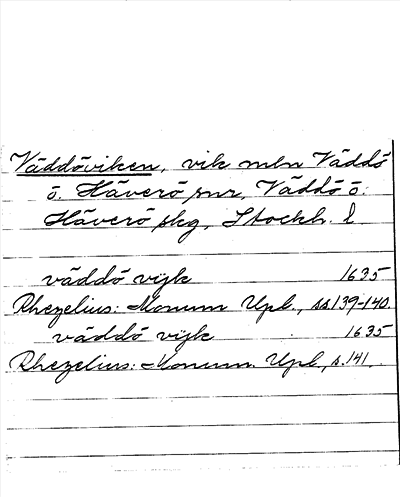 Väddöviken, vik mln Väddö
o. Häverö snr, Väddö o.
Häverö skg, Stockh. l
väddö vijk 1635
Rhezelius: Monum Upl., ss. 139-140.
väddö vijk 1635
Rhezelius: Monum. Upl., s. 141.